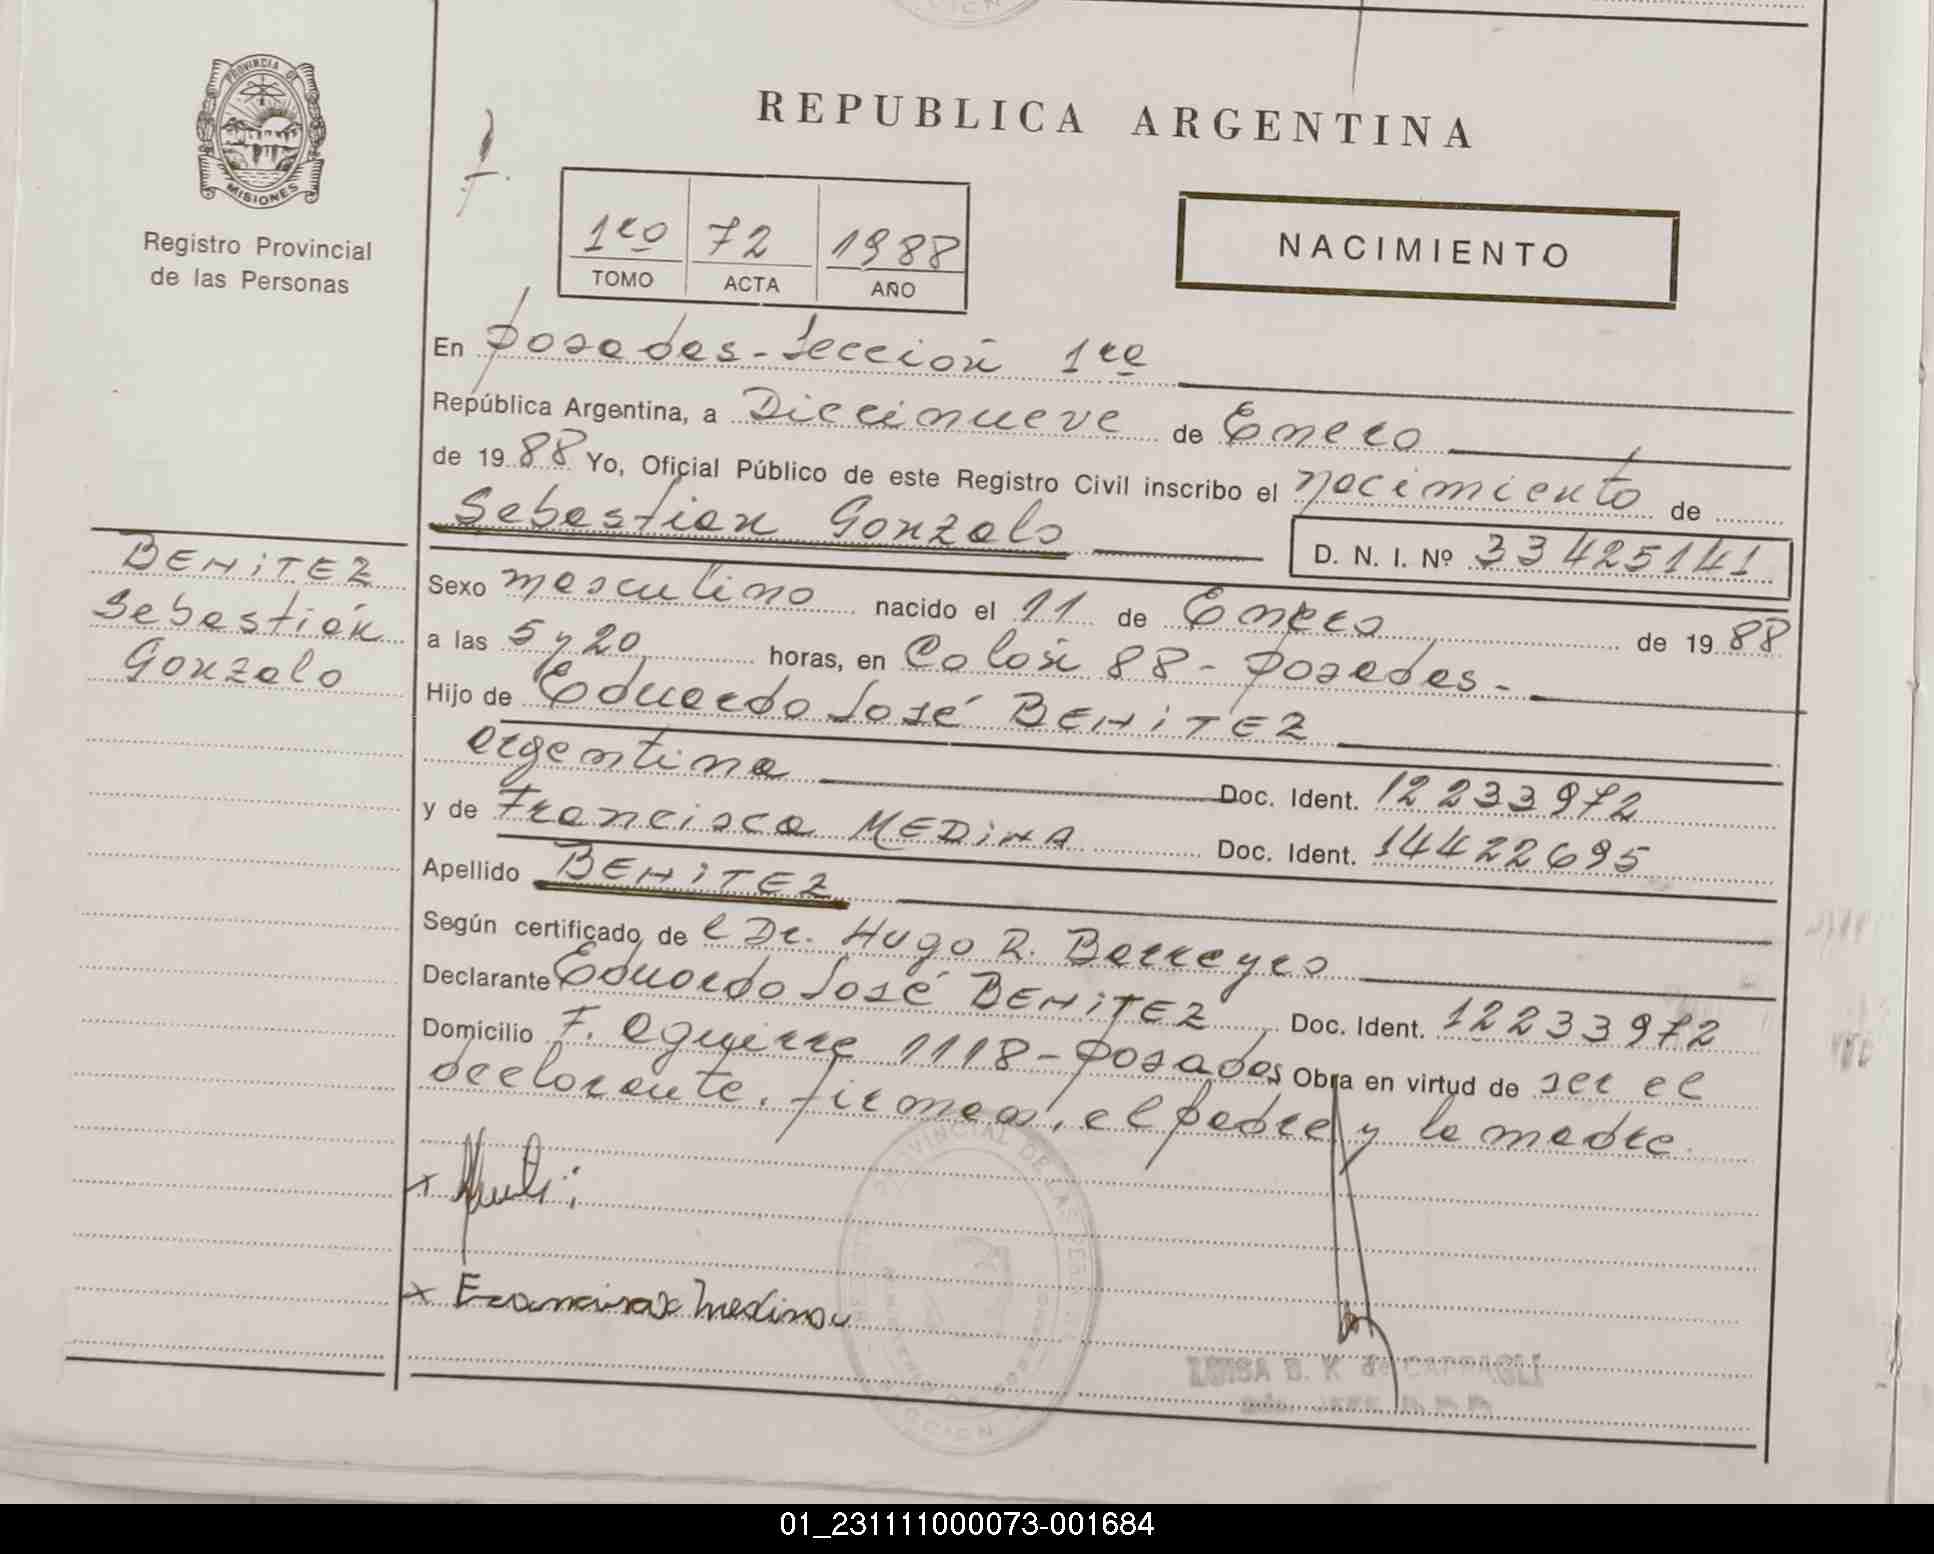 PROVINCIA DE
MISIONES
Registro Provincial
de las Personas
BENiTEZ
Sebastián
Gonzalo
REPUBLICA ARGENTINA
1ro 72 1988
TOMO ACTA AÑO
NACIMIENTO
En Posadas - Sección 1ra
República Argentina, a Diecinueve de Enero
de 1988 Yo, Oficial Público de este Registro Civil inscribo el nacimiento de
Sebastián Gonzalo D. N. I. Nº 33425141
Sexo masculino nacido el 11 de Enero de 1988
a las 5 y 20 horas, en Colón 88 - Posadas -
Hijo de Eduardo José BENiTEZ
argentina Doc. Ident. 12233972
y de Francisca MEDiNA Doc. Ident. 14422695
Apellido BENiTEZ
Según certificado de l Dr. Hugo R. Barreyro
Declarante Eduardo José BENiTEZ Doc. Ident. 12233972
Domicilio F. Aguirre 1118 - Posadas Obra en virtud de ser el
declarante. firman, el padre y la madre.
x
x Francisca Medina
PROVINCIAL DE LAS
01_231111000073-001684